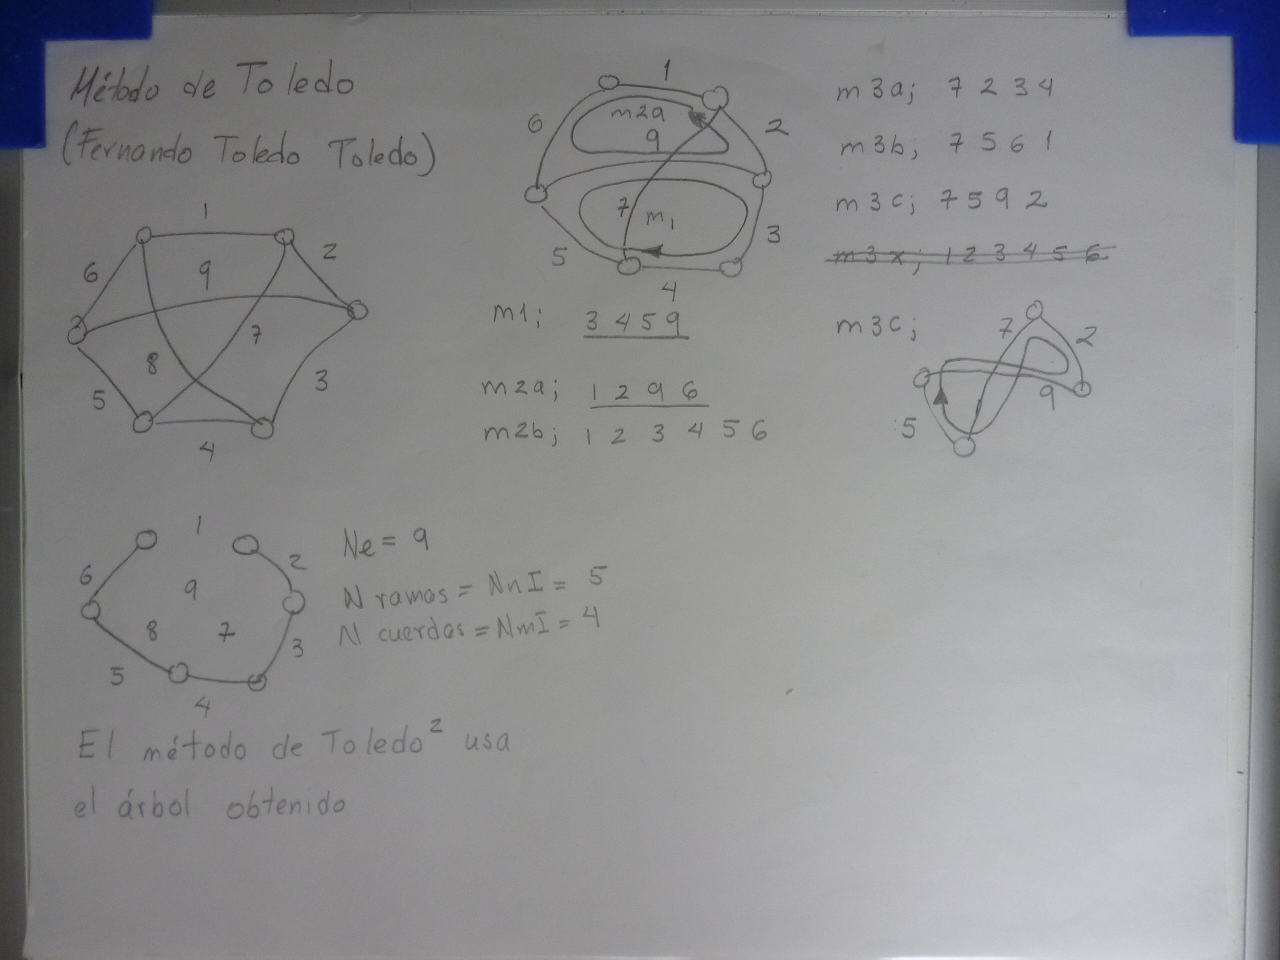 Método de Toledo
(Fernando Toledo Toledo)
1
6
9
2
7
8
5
3
4
1
6
m2a
9
2
7
m1
5
3
4
m1; 3 4 5 9
m2a; 1 2 9 6
m2b; 1 2 3 4 5 6
m3a; 7 2 3 4
m3b; 7 5 6 1
m3c; 7 5 9 2
m3x; 1 2 3 4 5 6
m3c;
7
2
9
5
1
6
9
2
8
7
5
3
4
Ne = 9
N ramas = NnI = 5
N cuerdas = NmI = 4
El método de Toledo² usa
el árbol obtenido